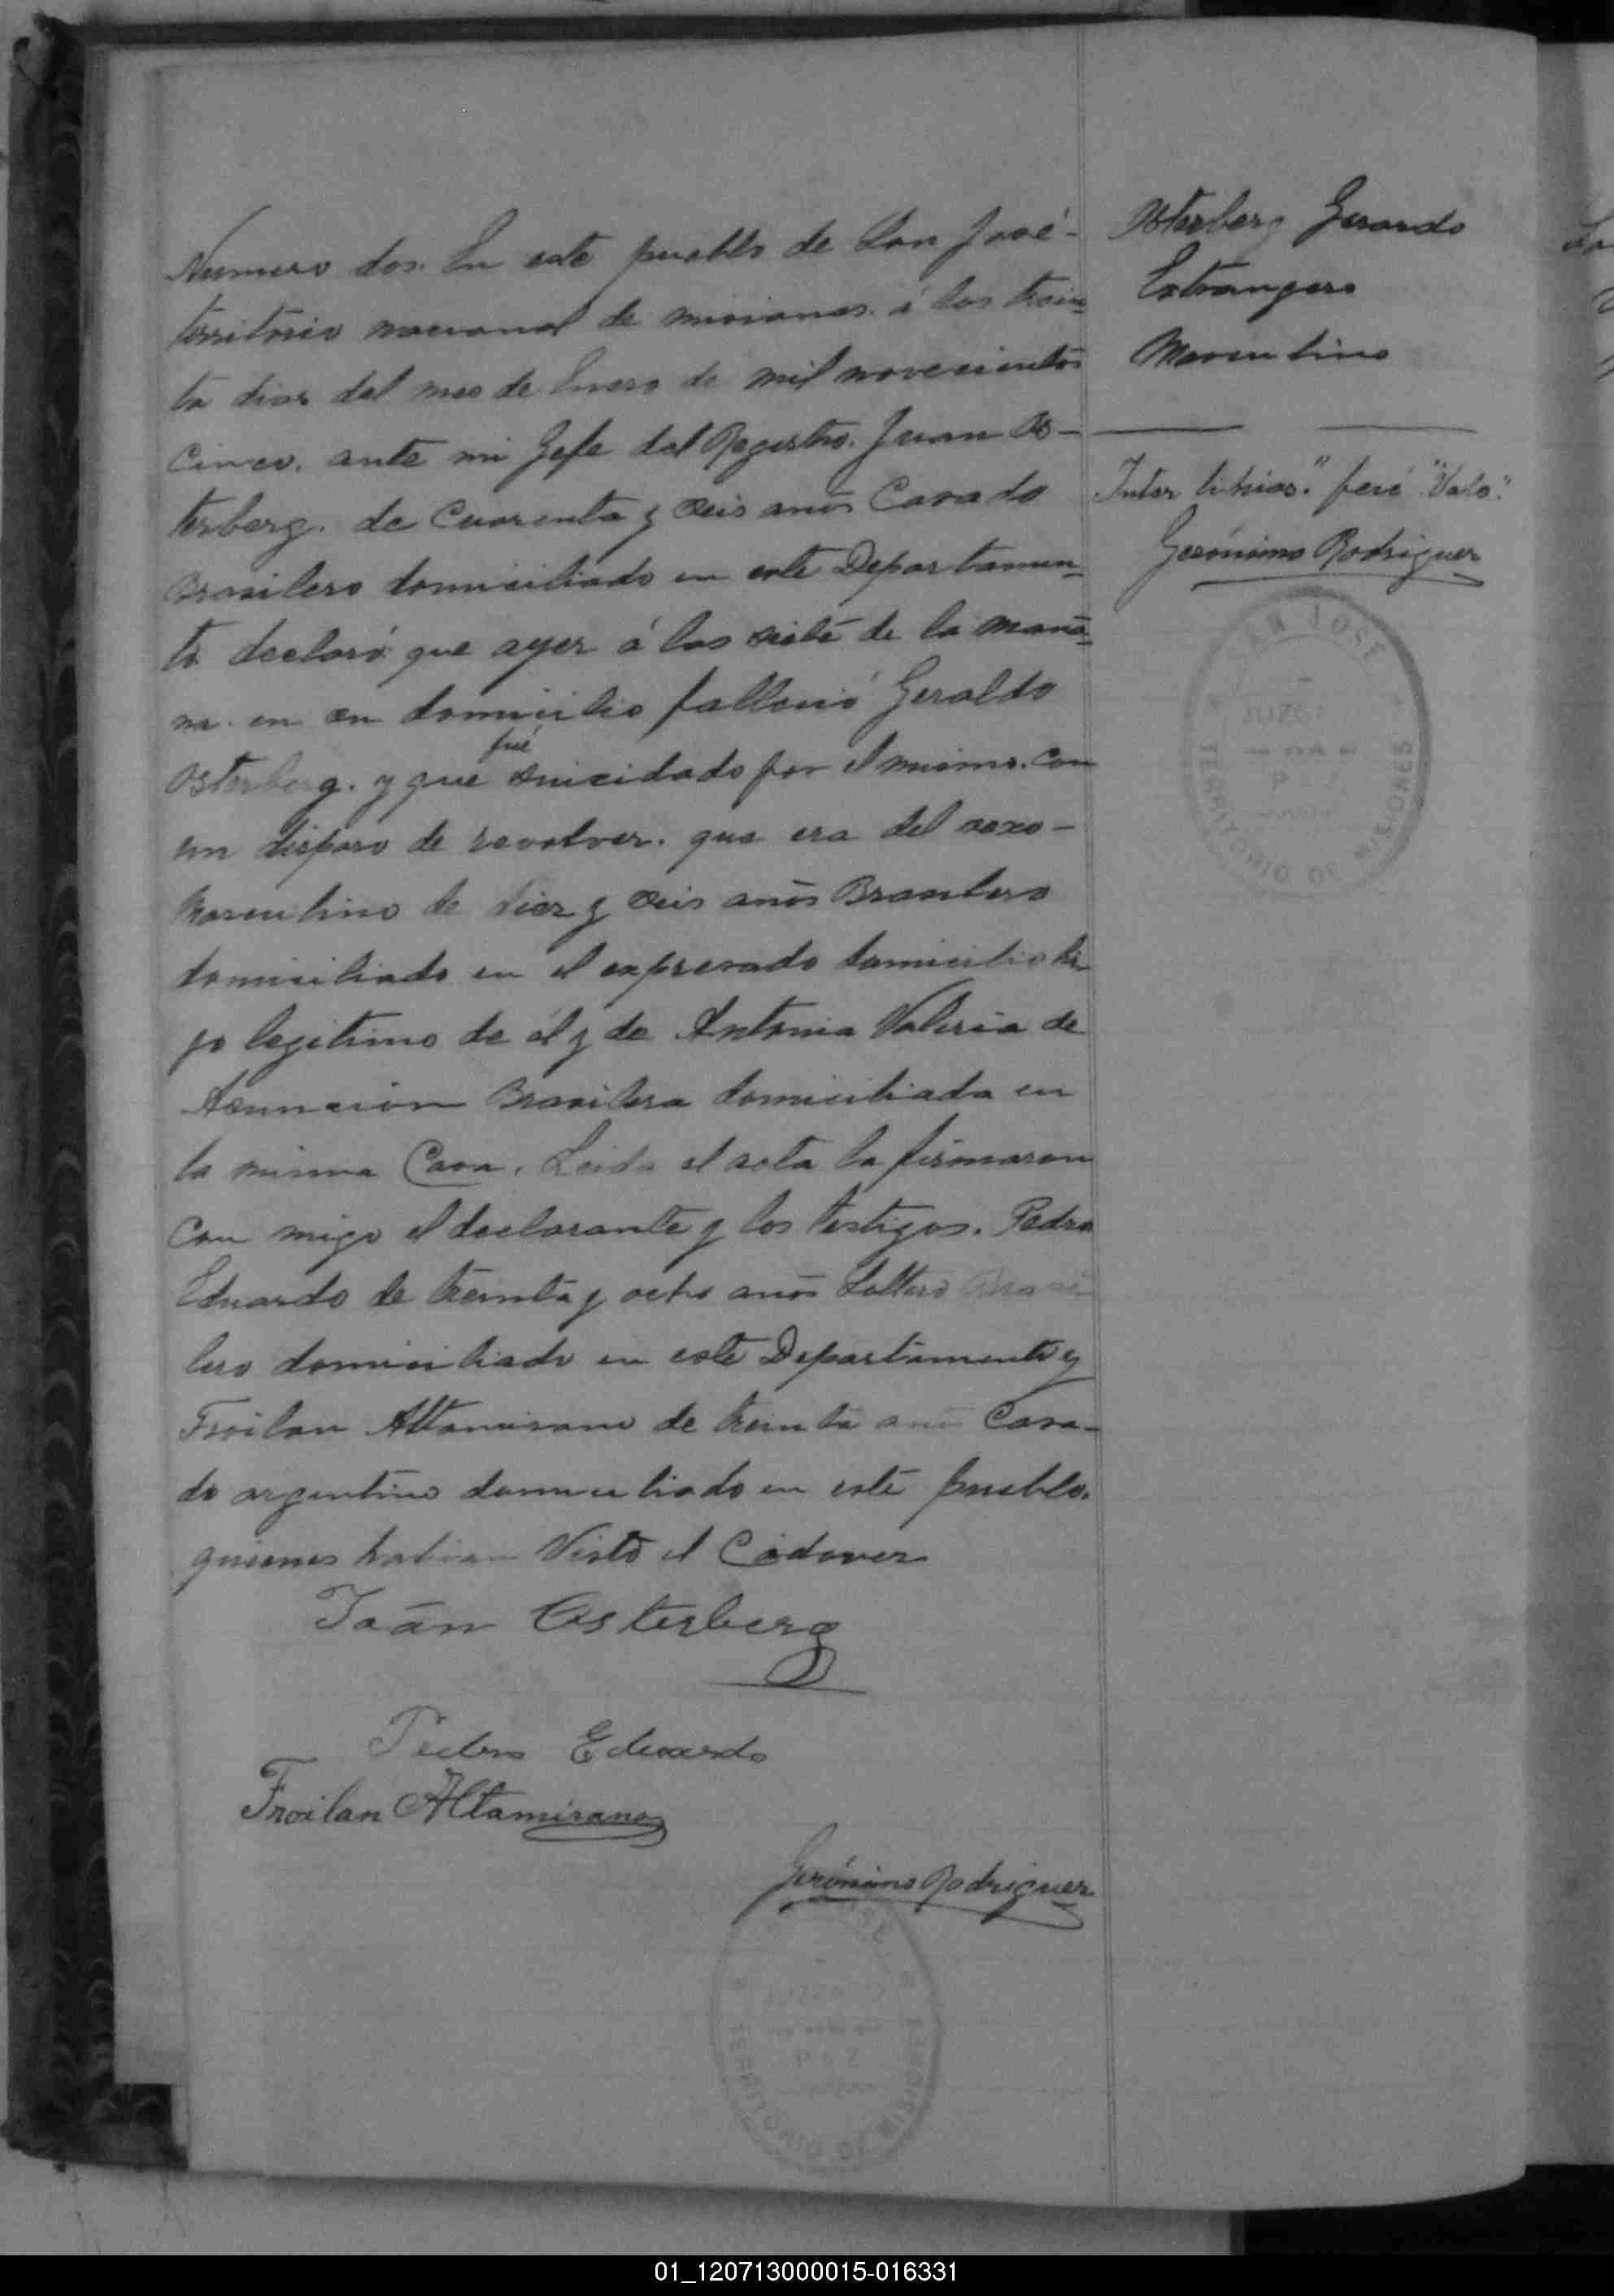 Numero dos. En este pueblo de San José-
territorio nacional de misiones á los trein-
ta dias del mes de Enero de mil novecientos
cinco, ante mi Gefe del Registro. Juan Os-
terberg. de Cuarenta y seis anõs Casado
Brasilero domiciliado en este Departamen-
to declaró que ayer á las siete de la maña-
na en su domicilio fallesió Geraldo
fué
Osterberg. y que suicidado por el mismo. con
un disparo de revolver. que era del sexo-
masculino de diez y seis anõs Brasilero
domiciliado en el expresado domicilio hi-
jo legitimo de él y de Antonia Valeria de
Asuncion Brasilera domiciliada en
la misma Casa. Leida el acta la firmaron
Con migo el declarante y los testigos. Pedro
Eduardo de treinta y ocho anõs Soltero Brasi
lero domiciliado en este Departamento y
Froilan Altamirano de treinta anõs Casa-
do argentino domiciliado en este pueblo.
quienes habian Visto el Cadaver
Joán Osterberg
Pedro Eduardo
Froilan Altamirano
Gerónimo Rodriguez
Osterberg Gerardo
Estrangero
Masculino
Inter liñias." fué "Vale."
Gerónimo Rodriguez
SAN JOSE
JUZG
PAZ
TERRITORIO DE MISIONES
TERRITORIO DE MISIONES
01_120713000015-016331